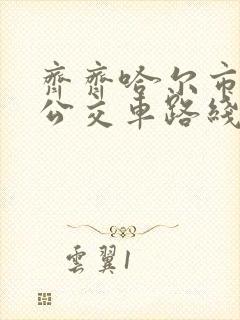 齊齊哈尔市
公交車路綫
雲翼1